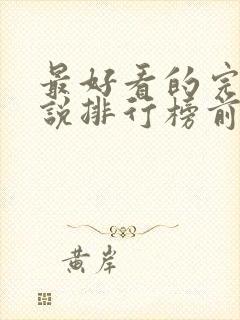 最好看的完
說排行榜前
黃岸